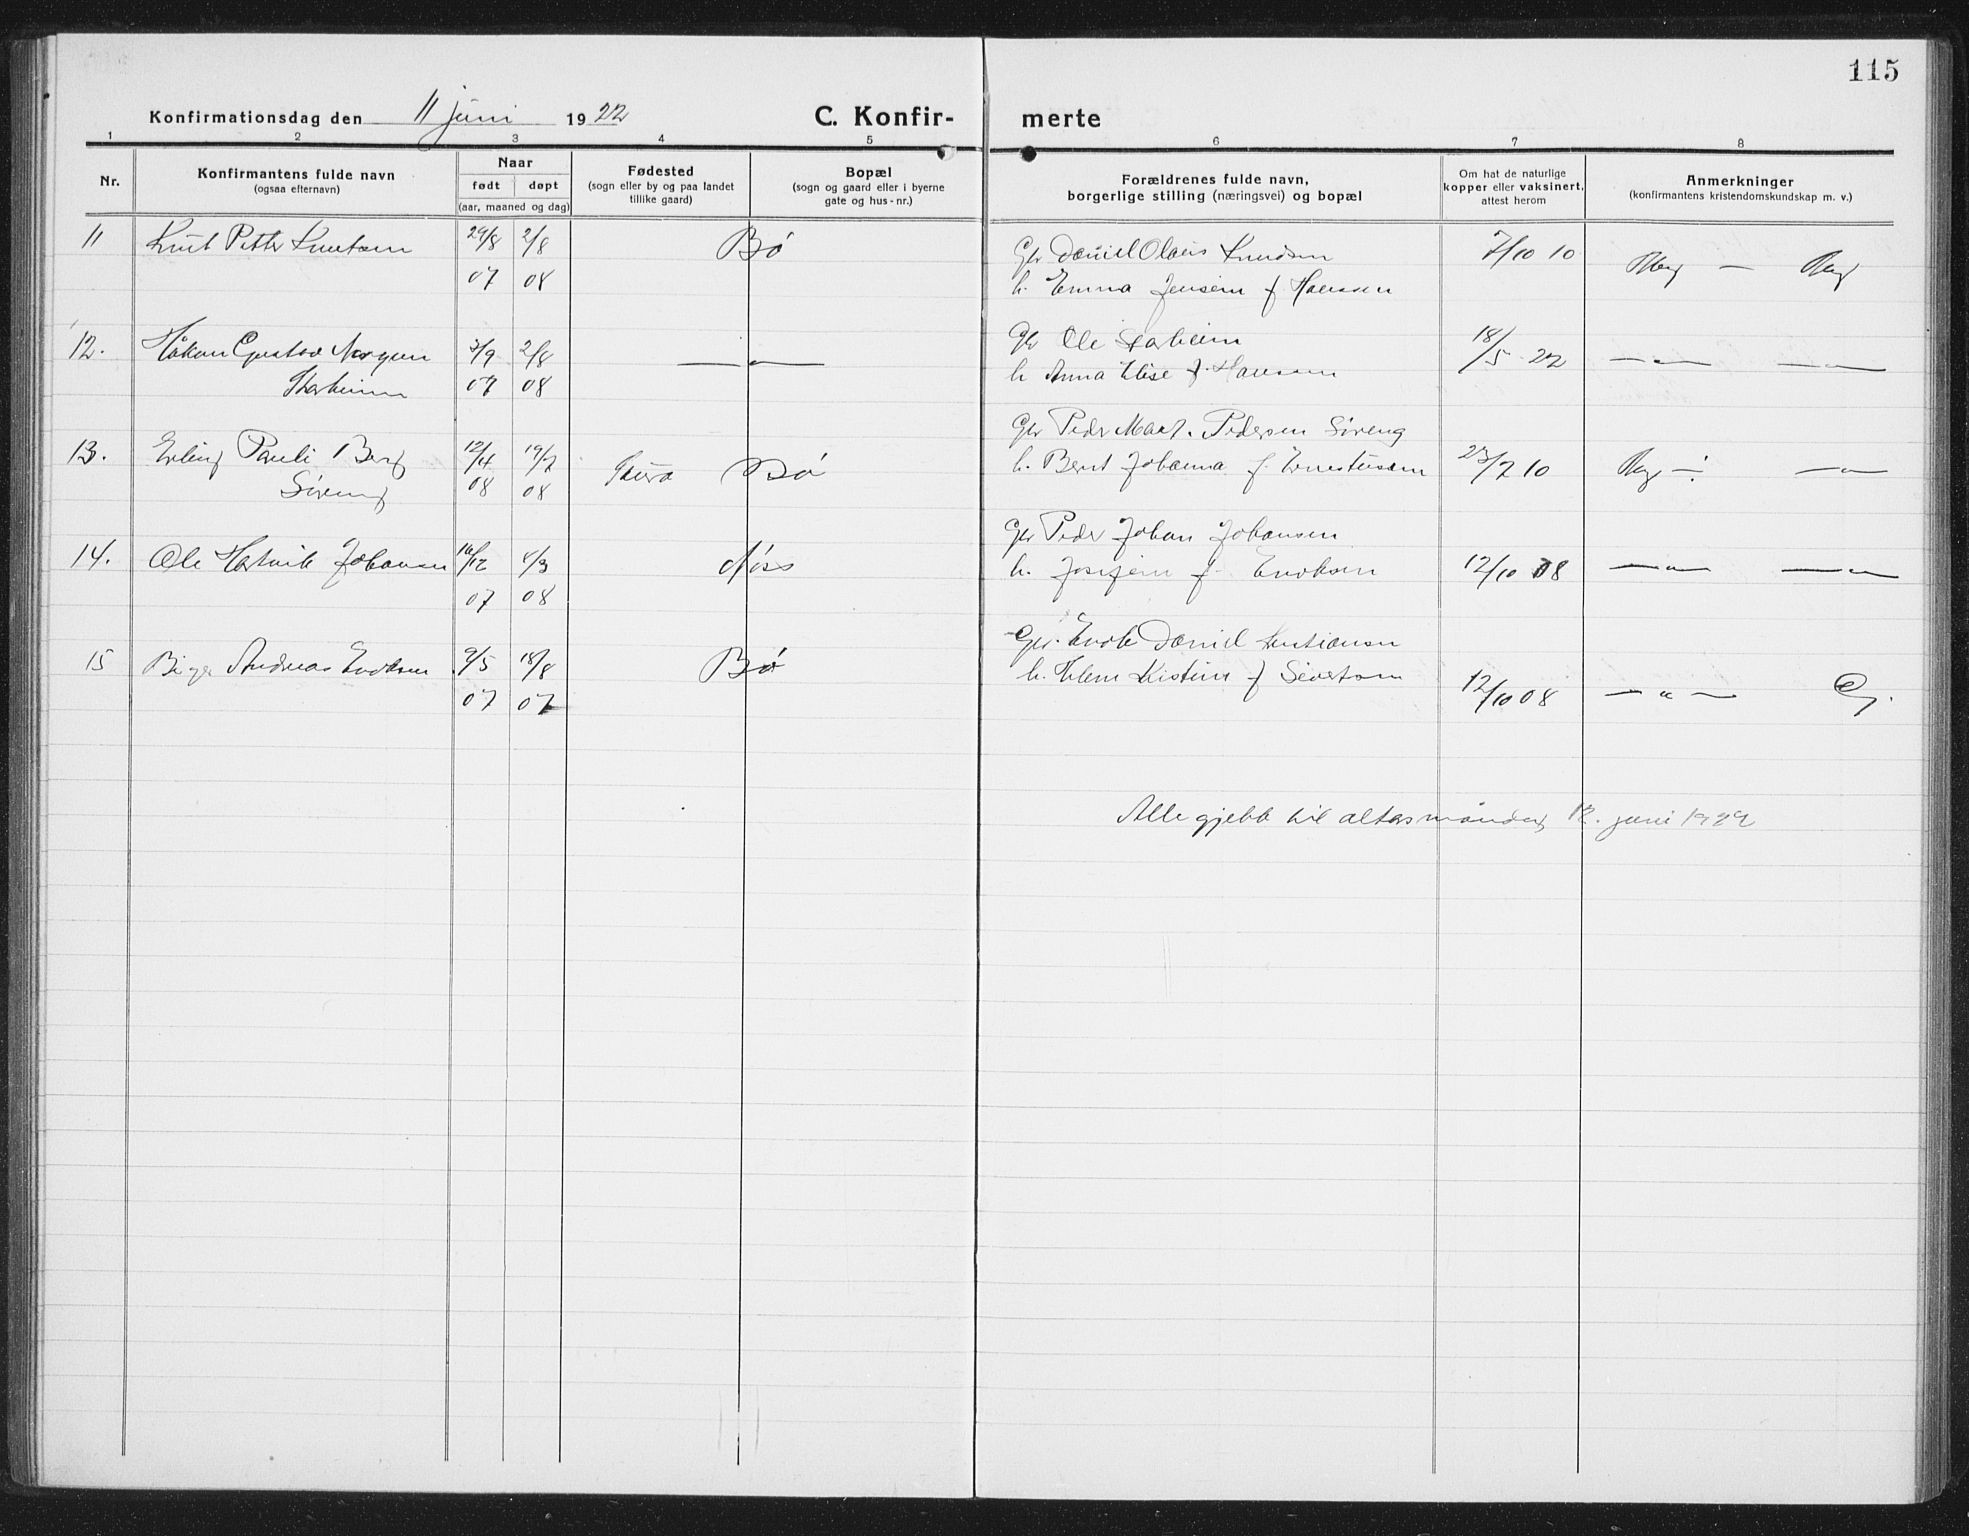 115
Konfirmationsdag den 11 juni 1922
C. Konfir- merte
1 2 3 4 5 6 7 8
Nr.
Konfirmantens fulde navn
(ogsaa efternavn)
Naar
født døpt
(aar, maaned og dag)
Fødested
(sogn eller by og paa landet
tillike gaard)
Bopæl
(sogn og gaard eller i byerne
gate og hus-nr.)
Forældrenes fulde navn,
borgerlige stilling (næringsvei) og bopæl
Om hat de naturlige
kopper eller vaksinert,
attest herom
Anmerkninger
(konfirmantens kristendomskundskap m. v.)
11 Knut Petter Knutsen 29/8 2/8 Bø Gbr Daniel Olaus Knudsen 7/10 10
07 08 h. Emma Jensine f Hanssen
12. Håkon Gustav 3/9 2/8 — " — Gbr Ole Skarheim 18/5 22 — " — — " —
Skarheim 07 08 h Anna Elise f. Hansen
Gbr Peder Mart. Pedersen Søreng
13. Erling Pauli Berg 12/4 19/7 Gaura Bø h. Bernt Johanna f. 23/7 10 — " —
Søreng 08 08
Gbr Peder Johan Johansen
14. Ole Hartvik Johansen 16/12 1/3 Nøss h. f. Enoksen 12/10 08 — " — — " —
07 08
Gbr. Enok Daniel
15 Birger Andreas Enoksen 9/5 18/8 Bø h. Kistine f Sivertsen
07 07 12/10 08 — " — G.
Alle gjekk til alters måndag 12. juni 1922